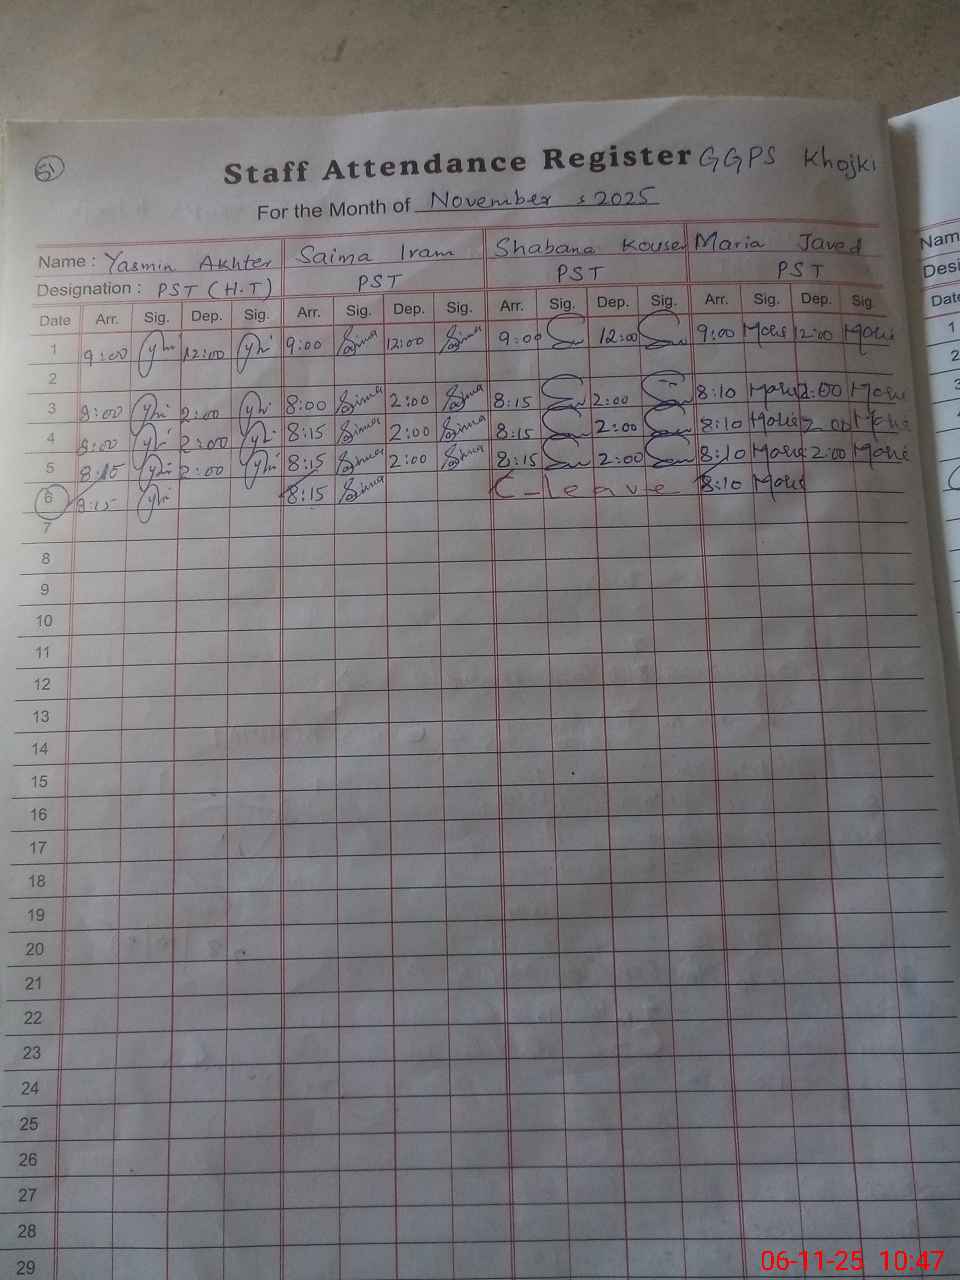 51
Staff Attendance Register GGPS Khojki
For the Month of November, 2025
Name : Yasmin Akhter Saima Iram Shabana Kouser Maria Javed
Designation : PST (H.T) PST PST PST
Date Arr. Sig. Dep. Sig. Arr. Sig. Dep. Sig. Arr. Sig. Dep. Sig. Arr. Sig. Dep. Sig.
1 9:00 12:00 9:00 Saima 12:00 Saima 9:00 12:00 9:00 12:00
2
3 8:00 2:00 8:00 Saima 2:00 Saima 8:15 2:00 8:10 2:00
4 8:00 2:00 8:15 Saima 2:00 Saima 8:15 2:00 8:10 2:00
5 8:15 2:00 8:15 Saima 2:00 Saima 8:15 2:00 8:10 2:00
6 8:15 8:15 Saima C-leave 8:10
7
8
9
10
11
12
13
14
15
16
17
18
19
20
21
22
23
24
25
26
27
28
29
Nam
Desi
Date
1
2
3
06-11-25 10:47